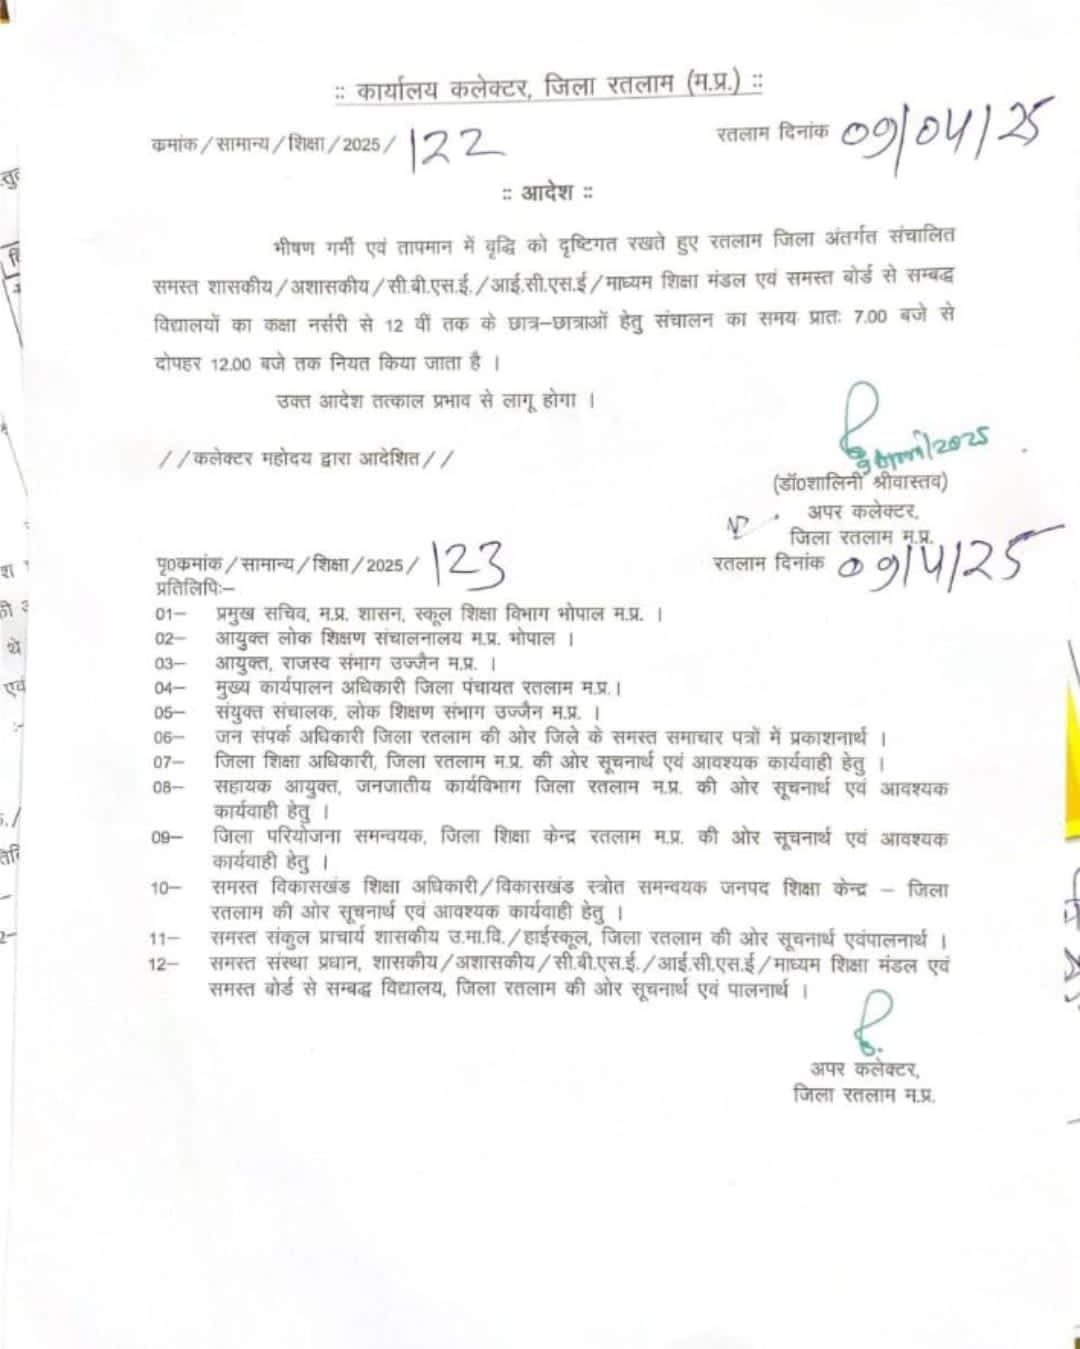 :: कार्यालय कलेक्टर, जिला रतलाम (म.प्र.) ::
कमांक/सामान्य/शिक्षा/2025/122
रतलाम दिनांक 09/04/25
:: आदेश ::
भीषण गर्मी एवं तापमान में वृद्धि को दृष्टिगत रखते हुए रतलाम जिला अंतर्गत संचालित
समस्त शासकीय/अशासकीय/सी.बी.एस.ई./आई.सी.एस.ई/माध्यम शिक्षा मंडल एवं समस्त बोर्ड से सम्बद्ध
विद्यालयों का कक्षा नर्सरी से 12 वीं तक के छात्र–छात्राओं हेतु संचालन का समय प्रातः 7.00 बजे से
दोपहर 12.00 बजे तक नियत किया जाता है ।
उक्त आदेश तत्काल प्रभाव से लागू होगा ।
//कलेक्टर महोदय द्वारा आदेशित//
9 April/2025
(डॉ0शालिनी श्रीवास्तव)
अपर कलेक्टर,
जिला रतलाम म.प्र.
पृ0कमांक/सामान्य/शिक्षा/2025/123
रतलाम दिनांक 09/4/25
प्रतिलिपिः–
01– प्रमुख सचिव, म.प्र. शासन, स्कूल शिक्षा विभाग भोपाल म.प्र. ।
02– आयुक्त लोक शिक्षण संचालनालय म.प्र. भोपाल ।
03– आयुक्त, राजस्व संभाग उज्जैन म.प्र. ।
04– मुख्य कार्यपालन अधिकारी जिला पंचायत रतलाम म.प्र.।
05– संयुक्त संचालक, लोक शिक्षण संभाग उज्जैन म.प्र. ।
06– जन संपर्क अधिकारी जिला रतलाम की ओर जिले के समस्त समाचार पत्रों में प्रकाशनार्थ ।
07– जिला शिक्षा अधिकारी, जिला रतलाम म.प्र. की ओर सूचनार्थ एवं आवश्यक कार्यवाही हेतु ।
08– सहायक आयुक्त, जनजातीय कार्यविभाग जिला रतलाम म.प्र. की ओर सूचनार्थ एवं आवश्यक
कार्यवाही हेतु ।
09– जिला परियोजना समन्वयक, जिला शिक्षा केन्द्र रतलाम म.प्र. की ओर सूचनार्थ एवं आवश्यक
कार्यवाही हेतु ।
10– समस्त विकासखंड शिक्षा अधिकारी/विकासखंड स्त्रोत समन्वयक जनपद शिक्षा केन्द्र – जिला
रतलाम की ओर सूचनार्थ एवं आवश्यक कार्यवाही हेतु ।
11– समस्त संकुल प्राचार्य शासकीय उ.मा.वि./हाईस्कूल, जिला रतलाम की ओर सूचनार्थ एवंपालनार्थ ।
12– समस्त संस्था प्रधान, शासकीय/अशासकीय/सी.बी.एस.ई./आई.सी.एस.ई/माध्यम शिक्षा मंडल एवं
समस्त बोर्ड से सम्बद्ध विद्यालय, जिला रतलाम की ओर सूचनार्थ एवं पालनार्थ ।
अपर कलेक्टर,
जिला रतलाम म.प्र.